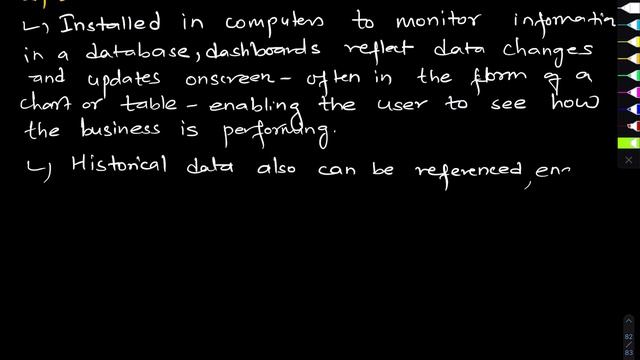 ↳ Installed in computers to monitor informatio
in a database, dashboards reflect data changes
and updates onscreen - often in the form of a
chart or table - enabling the user to see how
the business is performing.
↳ Historical data also can be referenced, en
82
/
83